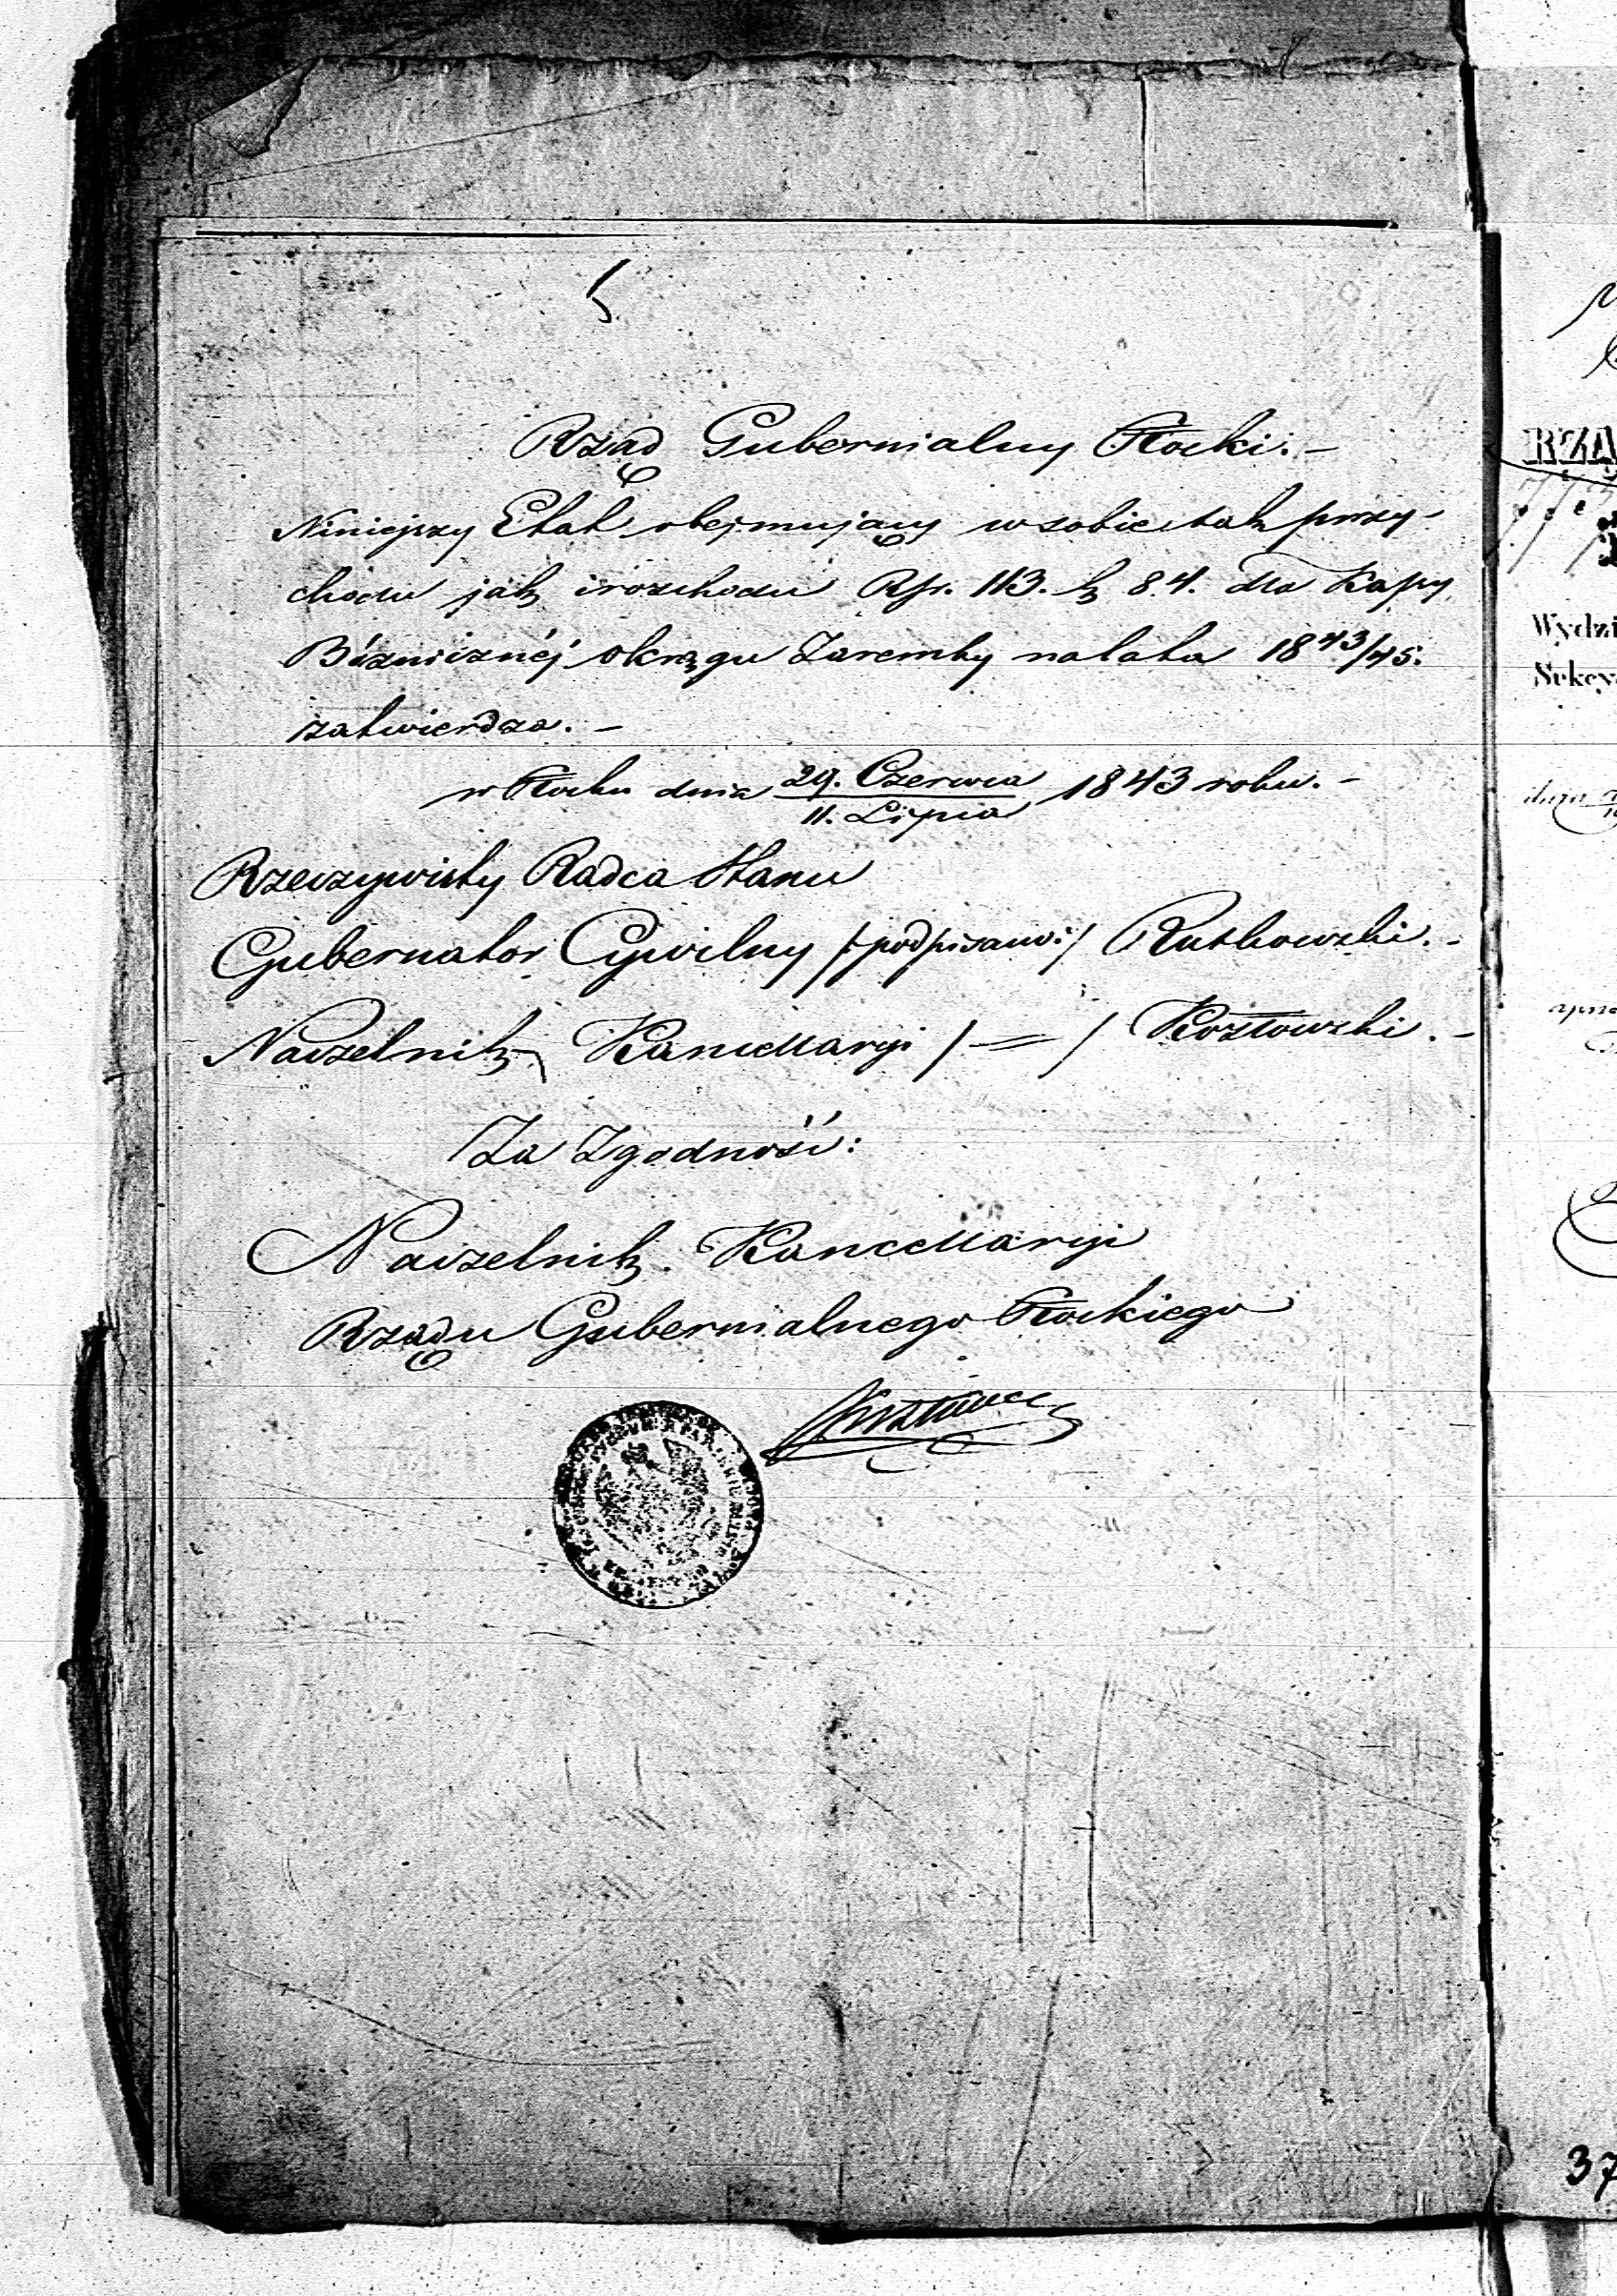 Rząd Gubernialny Płocki. –
Niniejszy Etat obejmujący w sobie tak przy-
chodu jak i rozchodu Rsr. 113. k 84. dla Kassy
Bóżnicznéj okręgu Zaremby na lata 1843/45.
zatwierdza. –
w Płocku dnia 29. Czerwca / 11. Lipca 1843 roku. –
Rzeczywisty Radca Stanu
Gubernator Cywilny /:podpisano:/ Rutkowski. –
Naczelnik Kancellaryi / = / Kozłowski. –
Za Zgodność:
Naczelnik Kancellaryi
Rządu Gubernialnego Płockiego
RZĄ
Wydzi
Sekcy
dnia
37